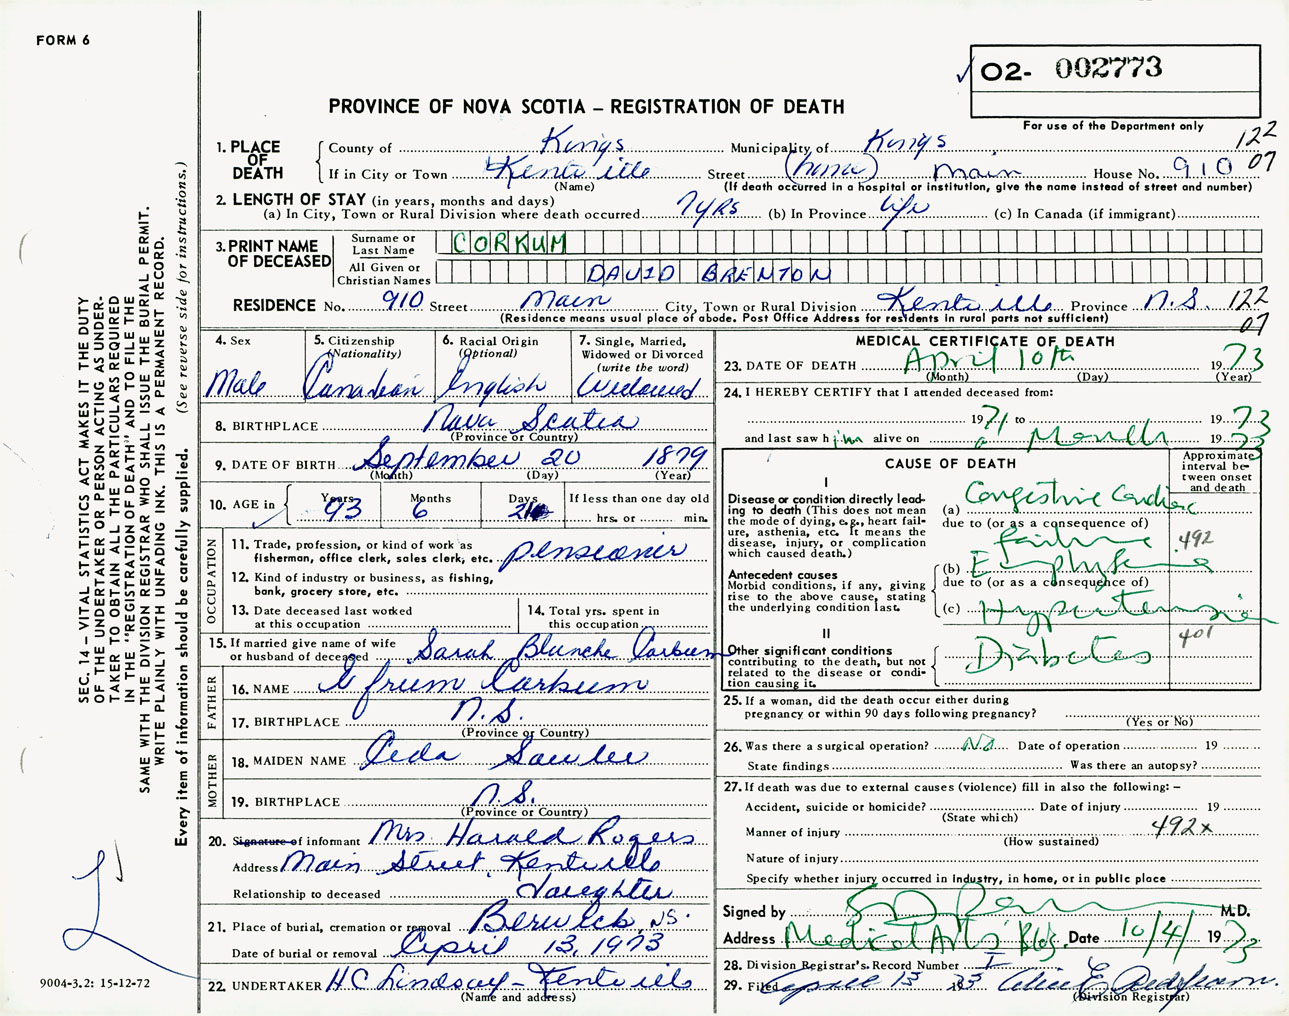 FORM 6
02- 002773
PROVINCE OF NOVA SCOTIA – REGISTRATION OF DEATH
For use of the Department only
122
07
1. PLACE OF DEATH
County of Kings Municipality of Kings
If in City or Town Kentville Street (home) Main House No. 910
(Name) (If death occurred in a hospital or institution, give the name instead of street and number)
2. LENGTH OF STAY (in years, months and days)
(a) In City, Town or Rural Division where death occurred 7 yrs (b) In Province life (c) In Canada (if immigrant)
3. PRINT NAME OF DECEASED
Surname or Last Name CORKUM
All Given or Christian Names DAVID BRENTON
RESIDENCE No. 910 Street Main City, Town or Rural Division Kentville Province N.S. 122
(Residence means usual place of abode. Post Office Address for residents in rural parts not sufficient) 07
4. Sex Male
5. Citizenship (Nationality) Canadian
6. Racial Origin (Optional) English
7. Single, Married, Widowed or Divorced (write the word) Widowed
8. BIRTHPLACE Nova Scotia
(Province or Country)
9. DATE OF BIRTH September 20 1879
(Month) (Day) (Year)
10. AGE in Years 93 Months 6 Days
If less than one day old
hrs. or min.
OCCUPATION
11. Trade, profession, or kind of work as fisherman, office clerk, sales clerk, etc. pensioner
12. Kind of industry or business, as fishing, bank, grocery store, etc.
13. Date deceased last worked at this occupation
14. Total yrs. spent in this occupation
15. If married give name of wife or husband of deceased Sarah Blanche Corkum
FATHER
16. NAME Efrum Corkum
17. BIRTHPLACE N.S.
(Province or Country)
MOTHER
18. MAIDEN NAME
19. BIRTHPLACE N.S.
(Province or Country)
20. Signature of informant Mrs. Harold Rogers
Address Main Street, Kentville
Relationship to deceased daughter
21. Place of burial, cremation or removal Berwick, NS.
Date of burial or removal April 13, 1973
22. UNDERTAKER HC Lindsay – Kentville
(Name and address)
MEDICAL CERTIFICATE OF DEATH
23. DATE OF DEATH April 10th 1973
(Month) (Day) (Year)
24. I HEREBY CERTIFY that I attended deceased from:
1971 to 1973
and last saw him alive on a Month 1973
CAUSE OF DEATH
Approximate interval between onset and death
I
Disease or condition directly leading to death (This does not mean the mode of dying, e.g., heart failure, asthenia, etc. It means the disease, injury, or complication which caused death.)
(a) Congestive Cardiac
due to (or as a consequence of)
failure 492
Antecedent causes
Morbid conditions, if any, giving rise to the above cause, stating the underlying condition last.
(b) Emphysema
due to (or as a consequence of)
(c) Hypertension
401
II
Other significant conditions contributing to the death, but not related to the disease or condition causing it.
Diabetes
25. If a woman, did the death occur either during pregnancy or within 90 days following pregnancy?
(Yes or No)
26. Was there a surgical operation? No Date of operation 19
State findings Was there an autopsy?
27. If death was due to external causes (violence) fill in also the following: –
Accident, suicide or homicide? Date of injury 19
(State which)
Manner of injury 492x
(How sustained)
Nature of injury
Specify whether injury occurred in industry, in home, or in public place
Signed by M.D.
Address Medical Arts Bldg. Date 10/4/ 1973
28. Division Registrar's Record Number
29. Filed April 13 1973
(Division Registrar)
SEC. 14 – VITAL STATISTICS ACT MAKES IT THE DUTY
OF THE UNDERTAKER OR PERSON ACTING AS UNDER-
TAKER TO OBTAIN ALL THE PARTICULARS REQUIRED
IN THE "REGISTRATION OF DEATH" AND TO FILE THE
SAME WITH THE DIVISION REGISTRAR WHO SHALL ISSUE THE BURIAL PERMIT.
WRITE PLAINLY WITH UNFADING INK. THIS IS A PERMANENT RECORD.
Every item of information should be carefully supplied. (See reverse side for instructions.)
9004-3.2: 15-12-72